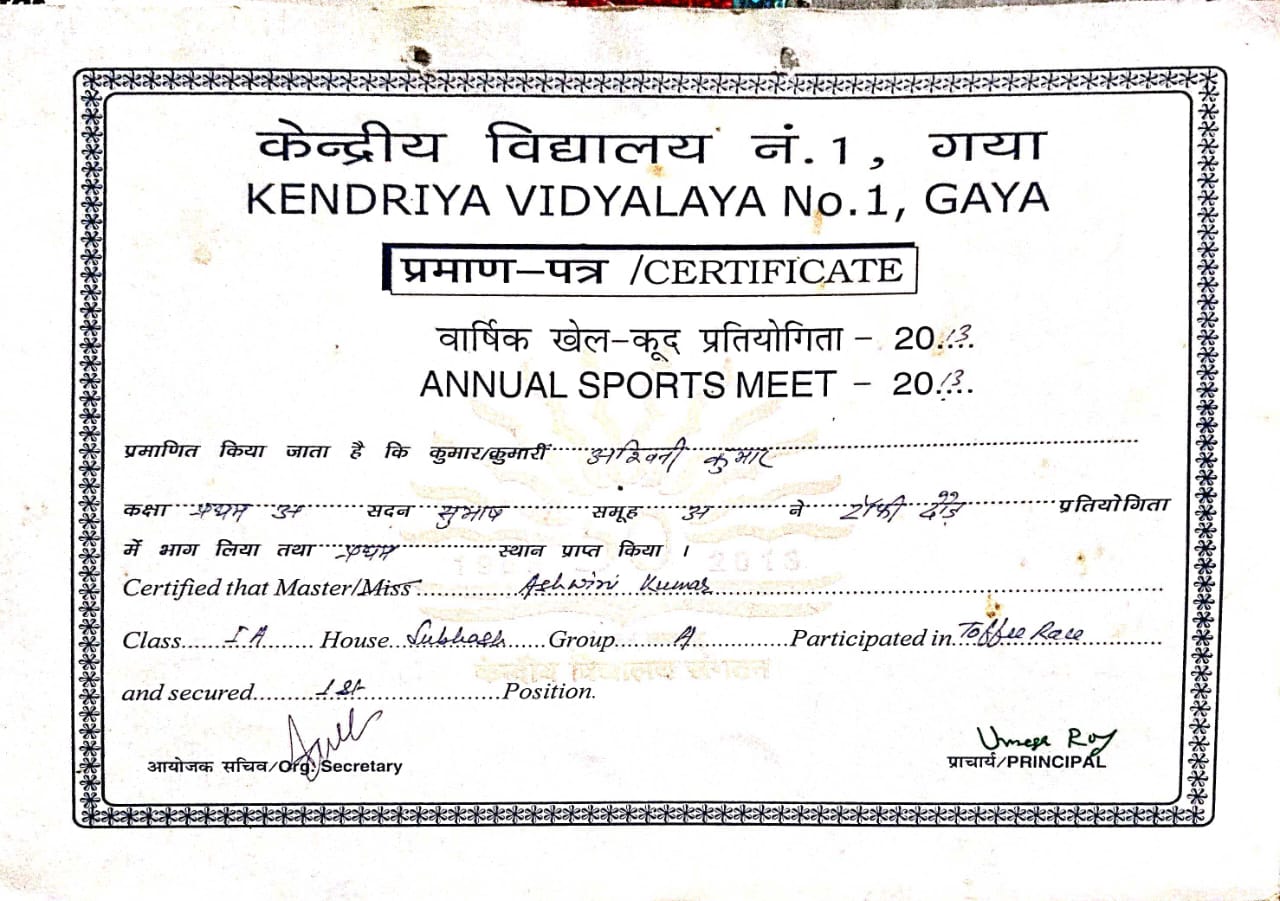 केन्द्रीय विद्यालय नं.1, गया
KENDRIYA VIDYALAYA No.1, GAYA
प्रमाण-पत्र /CERTIFICATE
वार्षिक खेल-कूद प्रतियोगिता - 2013
ANNUAL SPORTS MEET - 2013
प्रमाणित किया जाता है कि कुमार/कुमारी अश्विनी कुमार
कक्षा प्रथम अ सदन सुभाष समूह अ ने टॉफी दौड़ प्रतियोगिता
में भाग लिया तथा प्रथम स्थान प्राप्त किया ।
2013
Certified that Master/Miss Ashwini Kumar
Class I A House Subhash Group A Participated in Toffee Race
केन्द्रीय विद्यालय संगठन
and secured 1st Position.
Umesh Roy
आयोजक सचिव/Org. Secretary प्राचार्य/PRINCIPAL